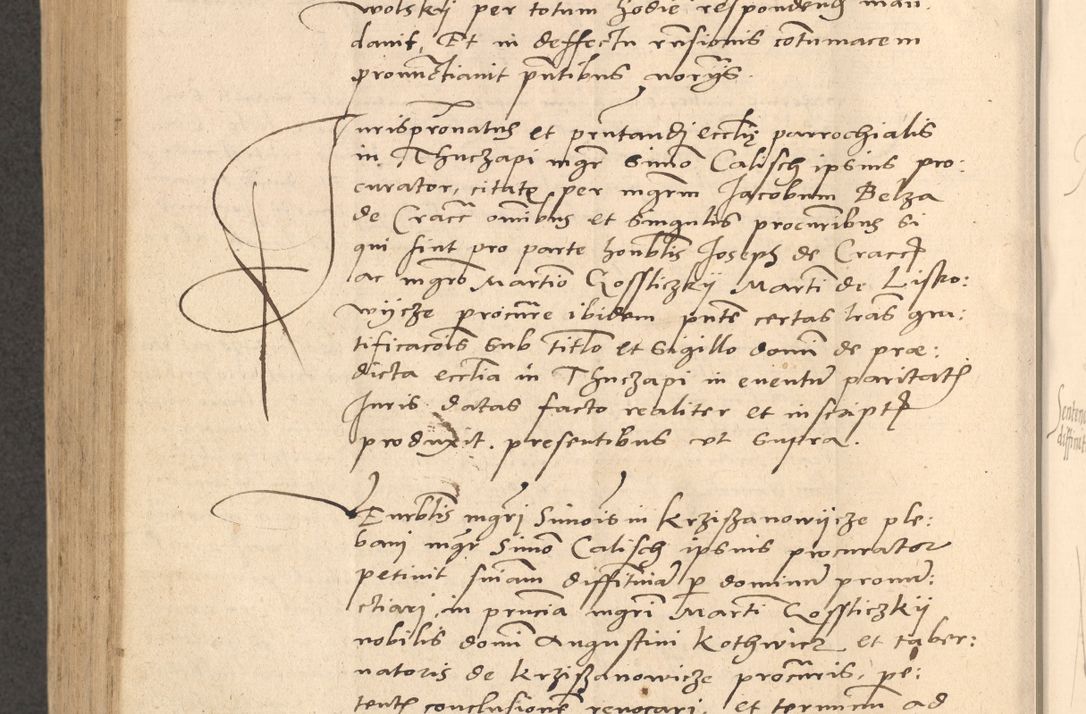 wolskÿ per totum hodie respondend man
davit, Et in deffectu rensionis cotumacem
pronunctiavit pntibus norÿs.
Jurispronatus et pntandj ecclie parrochialis
in Thuczapi mgr Simo Calisch ipsius pro:
curator, citatq per mgrm Jacobum Belza
de Cracca omibus et singulis procuribus si
qui sint pro parte honblis Joseph de Cracca
ac mgro Martio Gossliczkÿ Marti de Lisko:
wÿcze procure ibidem pnte certas lras gra:
tificacois sub titlo et sigillo domi de præ:
dicta ecclia in Thuczapi in eventu paritatis
Juris datas facto realiter et in scriptis
produxit. presentibus ut supra.
Venrblis mgri Simois in Krzißanowÿcze ple:
bani mgr Simo Calisch ipsius procurator
petivit sniam diffitivia p dominu pronu:
ctiari in pnncia mgri Marti Gossliczkÿ
nobilis domi Augustini Kothwicz et taber:
natoris de Krzißanowicze procuris, pe:
tente conclusione revocari, et terminum ad
Senten
diffinit